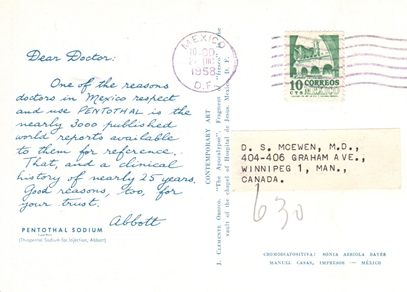 Dear Doctor:
One of the reasons
doctors in Mexico respect
and use PENTOTHAL is the
nearly 3000 published
world reports available
to them for reference.
That, and a clinical
history of nearly 25 years.
Good reasons, too, for
your trust.
Abbott
PENTOTHAL SODIUM
(Thiopental Sodium for Injection, Abbott)
CONTEMPORARY ART
J. Clemente Orozco. "The Apocalypse". Fragment of the
vault of the chapel of Hospital de Jesus, Mexico, D. F.
MEXICO
1958
D.F.
10
CORREOS
MEXICO
D. S. MCEWEN, M.D.,
404-406 GRAHAM AVE.,
WINNIPEG 1, MAN.,
CANADA.
630
MANUEL CASAS, IMPRESOR — MÉXICO